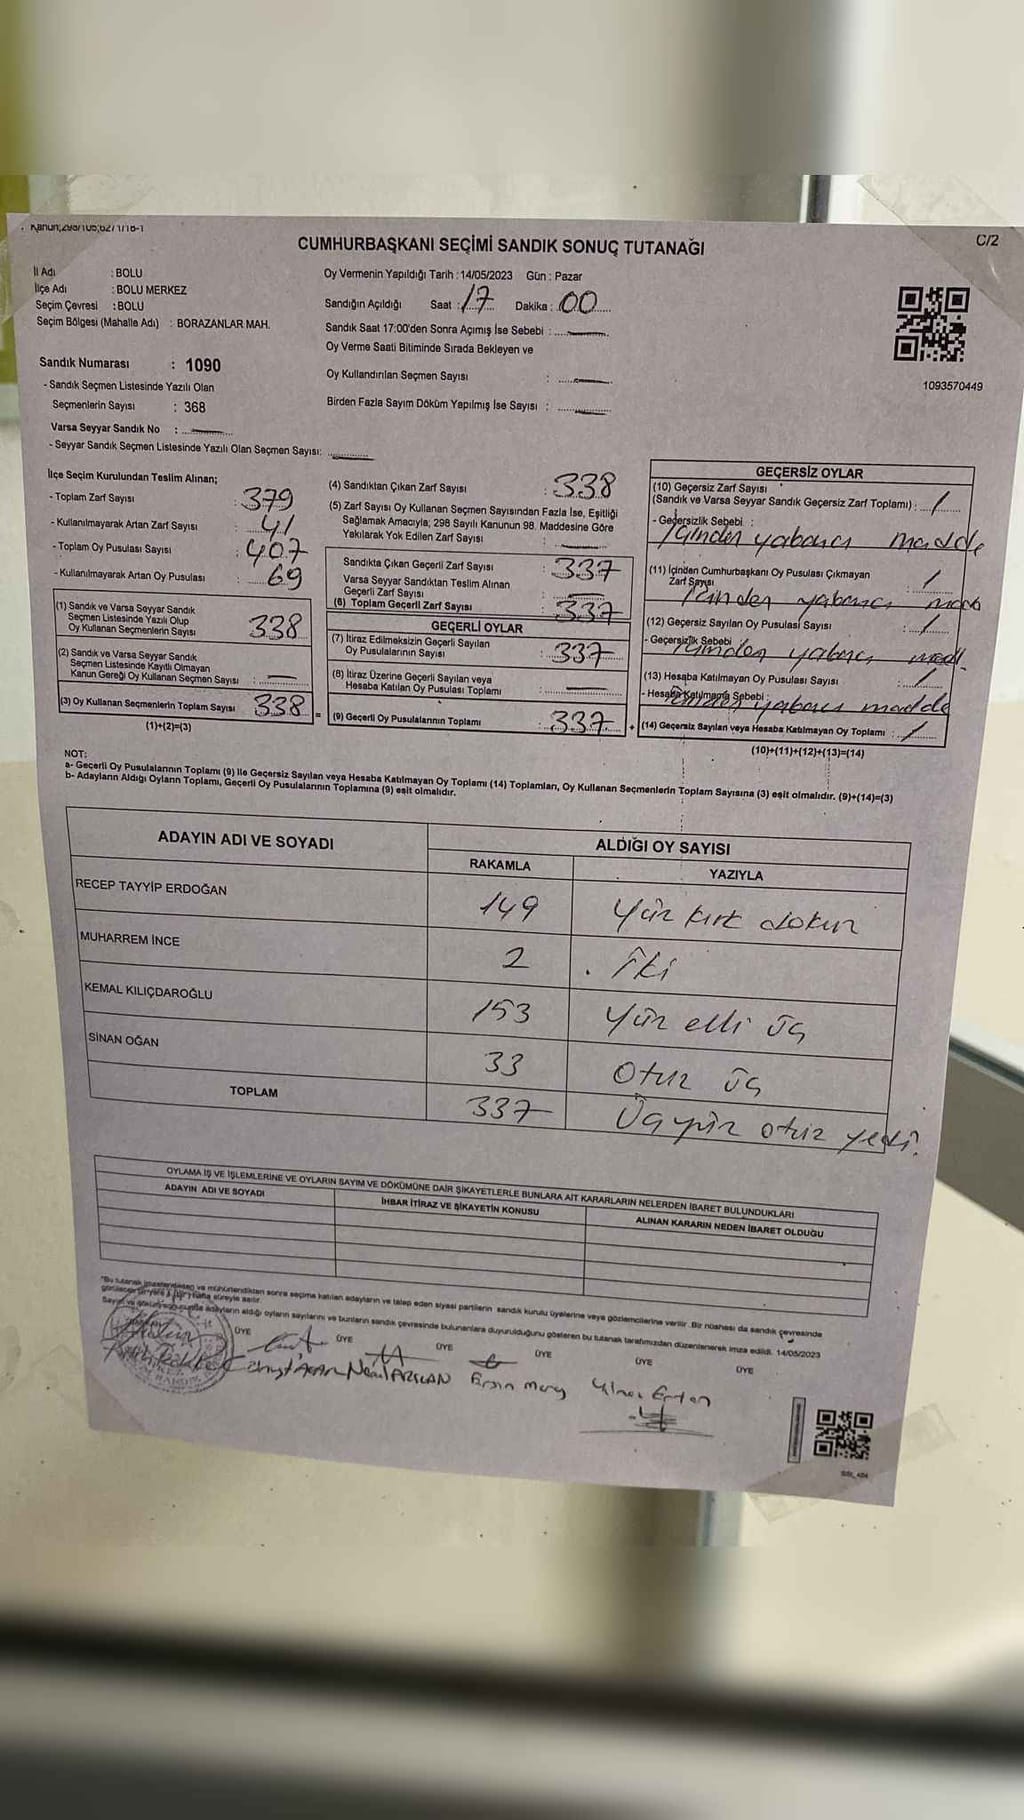 C/2
CUMHURBAŞKANI SEÇİMİ SANDIK SONUÇ TUTANAĞI
İl Adı : BOLU
İlçe Adı : BOLU MERKEZ
Seçim Çevresi : BOLU
Seçim Bölgesi (Mahalle Adı) : BORAZANLAR MAH.
Oy Vermenin Yapıldığı Tarih : 14/05/2023 Gün : Pazar
Sandığın Açıldığı Saat : 17 Dakika : 00
Sandık Saat 17:00'den Sonra Açımış İse Sebebi :
Oy Verme Saati Bitiminde Sırada Bekleyen ve
Oy Kullandırılan Seçmen Sayısı :
Birden Fazla Sayım Döküm Yapılmış İse Sayısı :
1093570449
Sandık Numarası : 1090
- Sandık Seçmen Listesinde Yazılı Olan
Seçmenlerin Sayısı : 368
Varsa Seyyar Sandık No :
- Seyyar Sandık Seçmen Listesinde Yazılı Olan Seçmen Sayısı:
İlçe Seçim Kurulundan Teslim Alınan;
- Toplam Zarf Sayısı : 379
- Kullanılmayarak Artan Zarf Sayısı : 41
- Toplam Oy Pusulası Sayısı : 407
- Kullanılmayarak Artan Oy Pusulası : 69
(1) Sandık ve Varsa Seyyar Sandık
Seçmen Listesinde Yazılı Olup
Oy Kullanan Seçmenlerin Sayısı 338
(2) Sandık ve Varsa Seyyar Sandık
Seçmen Listesinde Kayıtlı Olmayan
Kanun Gereği Oy Kullanan Seçmen Sayısı :
(3) Oy Kullanan Seçmenlerin Toplam Sayısı 338 =
(1)+(2)=(3)
(4) Sandıktan Çıkan Zarf Sayısı : 338
(5) Zarf Sayısı Oy Kullanan Seçmen Sayısından Fazla İse, Eşitliği
Sağlamak Amacıyla; 298 Sayılı Kanunun 98. Maddesine Göre
Yakılarak Yok Edilen Zarf Sayısı :
Sandıkta Çıkan Geçerli Zarf Sayısı : 337
Varsa Seyyar Sandıktan Teslim Alınan
Geçerli Zarf Sayısı :
(6) Toplam Geçerli Zarf Sayısı : 337
GEÇERLİ OYLAR
(7) İtiraz Edilmeksizin Geçerli Sayılan
Oy Pusulalarının Sayısı : 337
(8) İtiraz Üzerine Geçerli Sayılan veya
Hesaba Katılan Oy Pusulası Toplamı :
(9) Geçerli Oy Pusulalarının Toplamı : 337 +
GEÇERSİZ OYLAR
(10) Geçersiz Zarf Sayısı
(Sandık ve Varsa Seyyar Sandık Geçersiz Zarf Toplamı) : 1
- Geçersizlik Sebebi :
İçinden yabancı madde
(11) İçinden Cumhurbaşkanı Oy Pusulası Çıkmayan
Zarf Sayısı : 1
İçinden yabancı madd
(12) Geçersiz Sayılan Oy Pusulası Sayısı : 1
- Geçersizlik Sebebi :
İçinden yabancı madd.
(13) Hesaba Katılmayan Oy Pusulası Sayısı : 1
- Hesaba Katılmama Sebebi :
İçinden yabancı madde
(14) Geçersiz Sayılan veya Hesaba Katılmayan Oy Toplamı : 1
(10)+(11)+(12)+(13)=(14)
NOT:
a- Geçerli Oy Pusulalarının Toplamı (9) İle Geçersiz Sayılan veya Hesaba Katılmayan Oy Toplamı (14) Toplamları, Oy Kullanan Seçmenlerin Toplam Sayısına (3) eşit olmalıdır. (9)+(14)=(3)
b- Adayların Aldığı Oyların Toplamı, Geçerli Oy Pusulalarının Toplamına (9) eşit olmalıdır.
ADAYIN ADI VE SOYADI
ALDIĞI OY SAYISI
RAKAMLA YAZIYLA
RECEP TAYYİP ERDOĞAN 149 Yüz kırk dokuz
MUHARREM İNCE 2 İki
KEMAL KILIÇDAROĞLU 153 Yüz elli üç
SİNAN OĞAN 33 Otuz üç
TOPLAM 337 Üçyüz otuz yedi.
OYLAMA İŞ VE İŞLEMLERİNE VE OYLARIN SAYIM VE DÖKÜMÜNE DAİR ŞİKAYETLERLE BUNLARA AİT KARARLARIN NELERDEN İBARET BULUNDUKLARI
ADAYIN ADI VE SOYADI
İHBAR İTİRAZ VE ŞİKAYETİN KONUSU
ALINAN KARARIN NEDEN İBARET OLDUĞU
ÜYE ÜYE ÜYE ÜYE ÜYE ÜYE